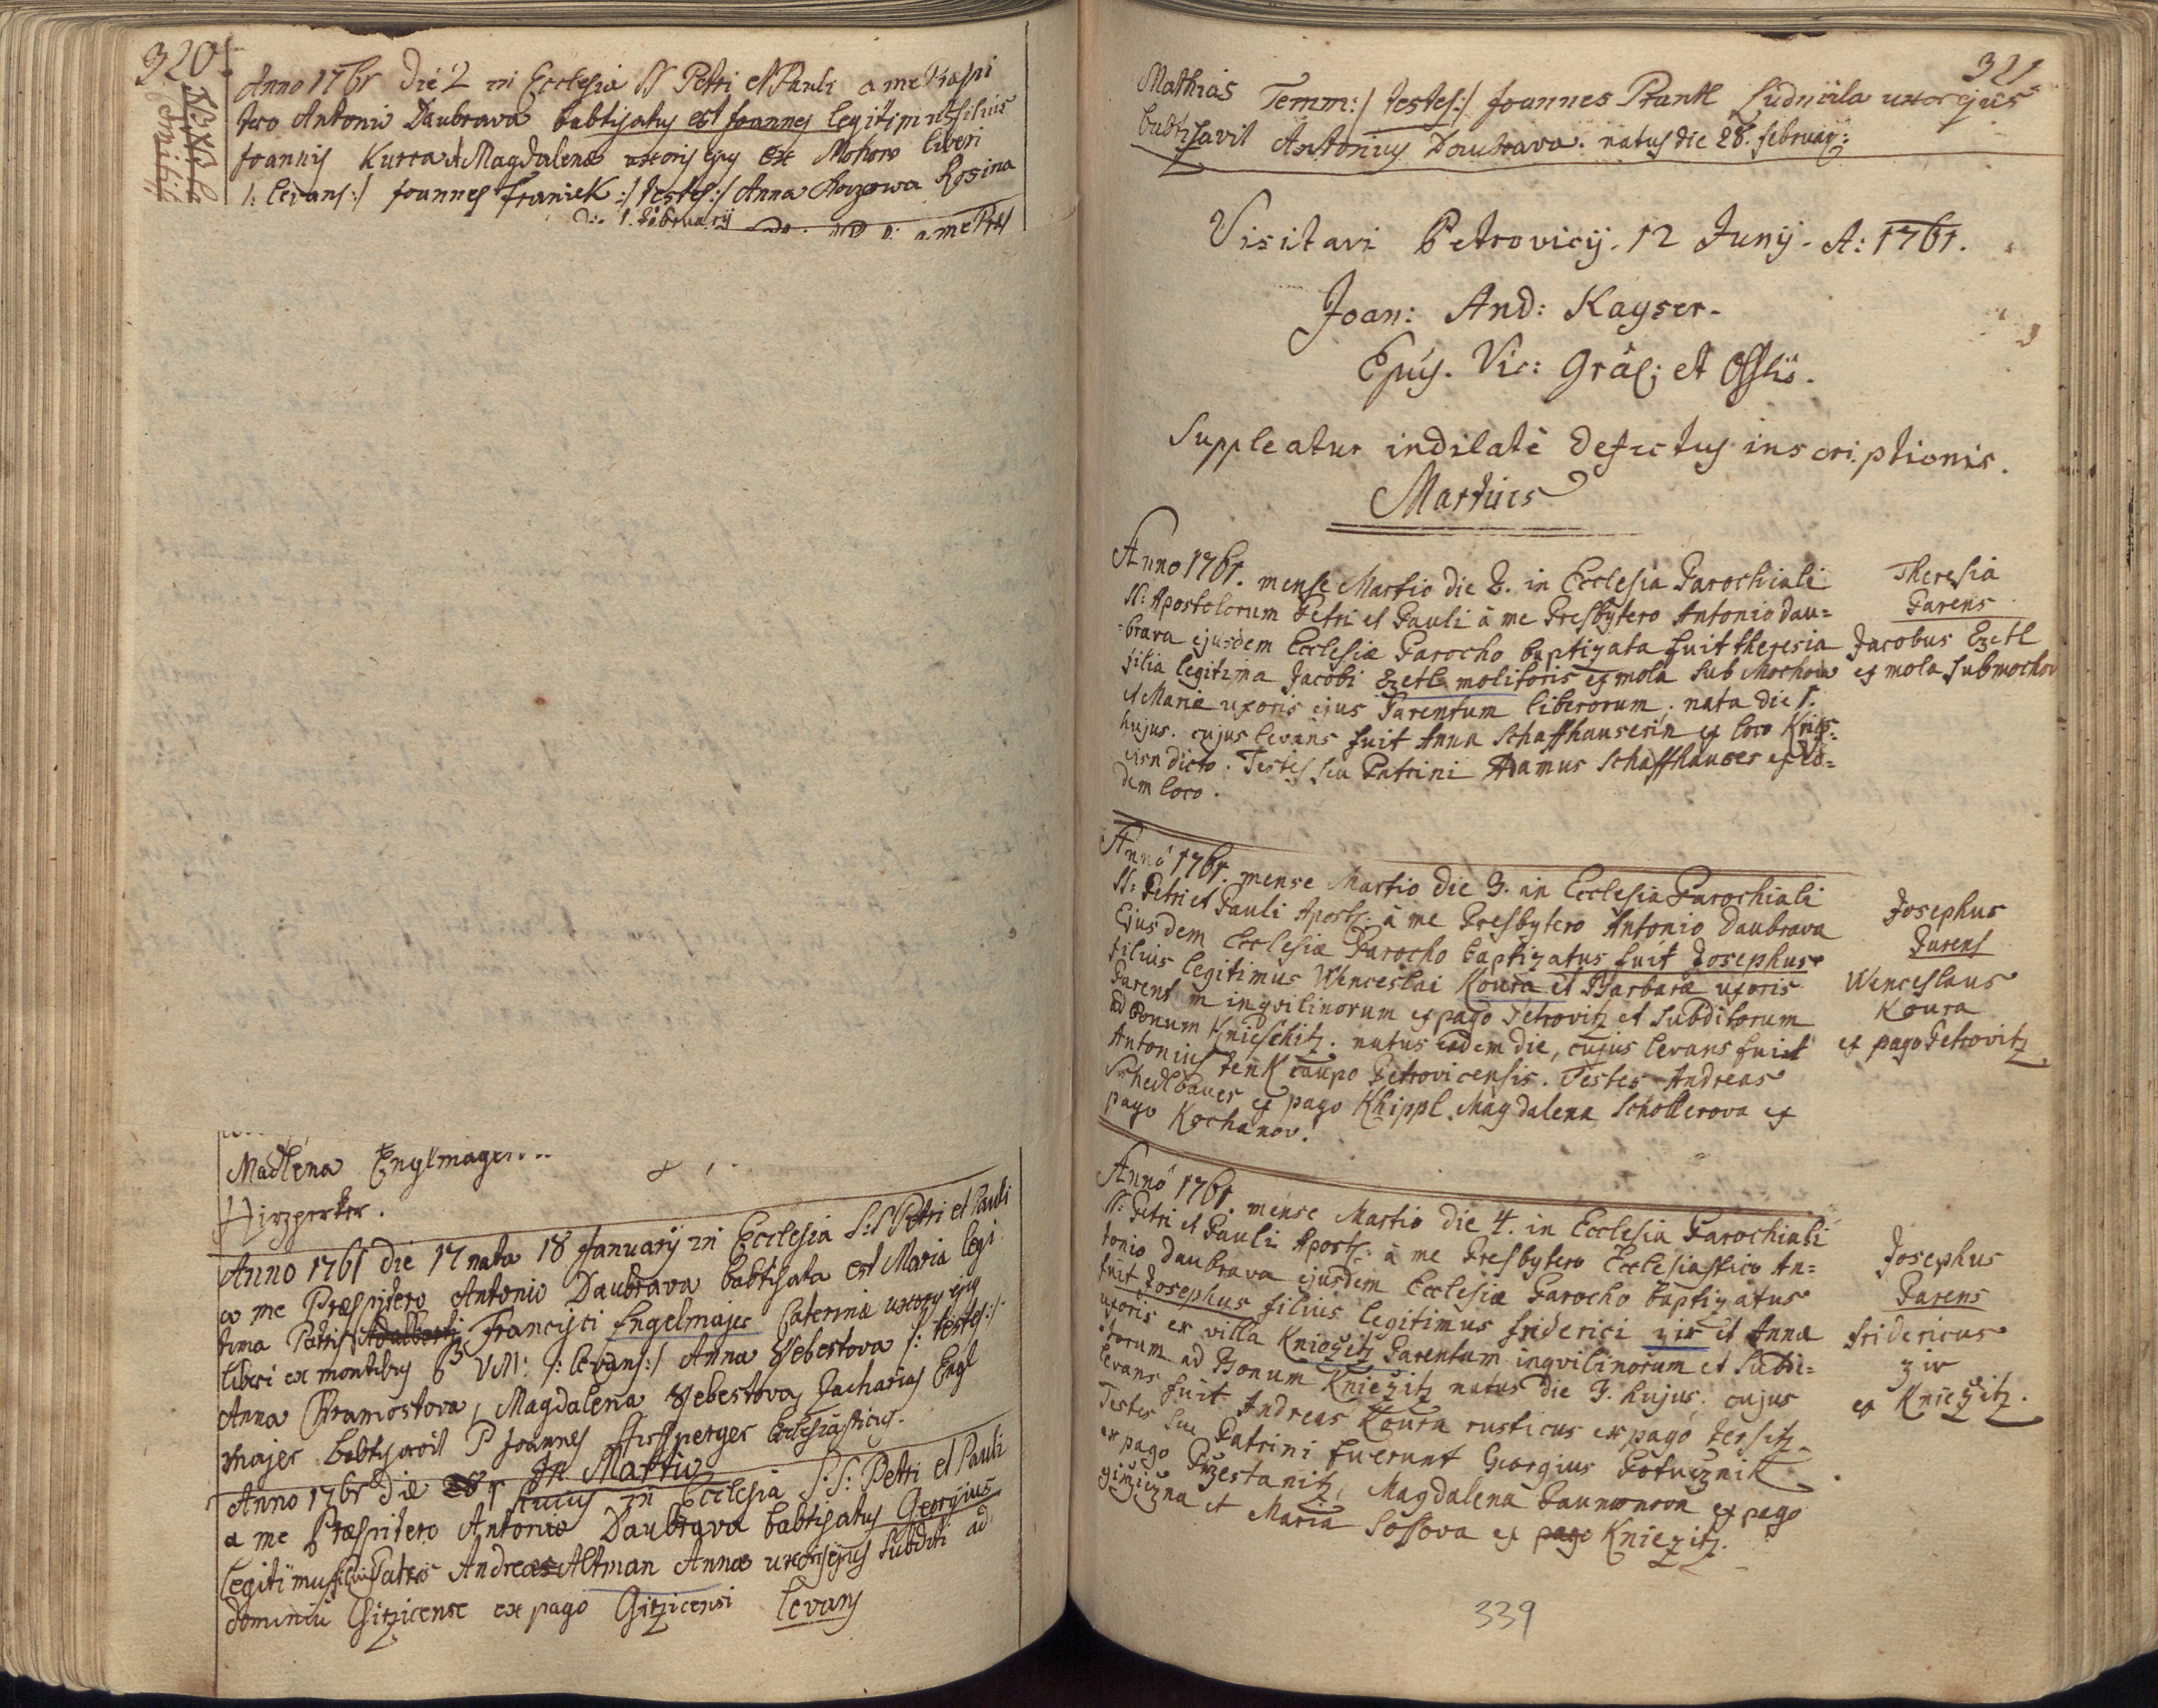 320
Anno 1761 Die 2 in Ecclesia SS Petri et Pauli a me Præspi
tero Antonio Daubrava babtisatus est Joannes legitimus filius
Joannis Kurra et Magdalena uxoris ejus ex Mohow liberi
/: levans :/ Joannes Franiek :/ testes :/ Anna Rosina
Die 1. Februarij a me
Madlena
Hirzperker.
Anno 1761 die 17 nata 18 January in Ecclesia S:S Petri et Pauli
a me Præspitero Antonio Daubrava babtisata est Maria legi
tima Patris Francisci Engelmajer Caterina uxoris ejus
liberi ex montibus B V M: /: levans :/ Anna Sebestova /: testes :/
Anna Magdalena Sebestova Zacharias Engl
majer babtisavit P Joannes Ecclesiasticus.
In Martio
Anno 1761 die in Ecclesia S:S: Petri et Pauli
a me Præspitero Antonio Daubrava babtisatus Georgius
legitimus filius Patris Andreas Altman Anna uxoris ejus subditi ad
dominiu Gitzicense ex pago Gitzicensi levans
321
Mathias Temm: / testes :/ Joannes Prantl Ludmila uxor ejus
babtisavit Antonius Daubrava. natus die 28. februarÿ:
Visitavi Petrovicÿ. 12 Junÿ. A: 1761.
Joan: And: Kayser.
Epus. Vic: Gral; et Offlis.
Suppleatur indilatè defectus inscriptionis.
Martius
Anno 1761. mense Martio die 2. in Ecclesia Parochiali
SS: Apostolorum Petri et Pauli à me Presbytero Antonio Dau=
=brava ejusdem Ecclesiæ Parocho baptizata fuit theresia
filia legitima Jacobi Ezetl molitoris ex mola sub Mochow
et Mariæ uxoris ejus Parentum liberorum. nata die 1.
hujus. cujus levans fuit Anna Schaffhauserin ex loco
dicto. Testes seu Patrini Adamus Schaffhauser ex eo=
dem loco.
Theresia
Parens
Jacobus Ezetl
ex mola sub mochov
Anno 1761. mense Martio die 3. in Ecclesia Parochiali
SS: Petri et Pauli Apost: à me Presbytero Antonio Daubrava
Ejusdem Ecclesiæ Parocho baptizatus fuit Josephus
filius legitimus Wenceslai Koura et Barbaræ uxoris
Parentum inqvilinorum ex pago Petrovitz et Subditorum
ad Bonum Knieschitz. natus eadem die, cujus levans fuit
Antonius tenk caupo Petrovicensis. Testes Andreas
Schedlbauer ex pago Khippl. Magdalena Schollerova ex
pago Kochanov.
Josephus
Parens
Wenceslaus
Koura
ex pago Petrovitz
Anno 1761. mense Martio die 4. in Ecclesia Parochiali
SS: Petri et Pauli Apost: à me Presbytero Ecclesiastico An=
tonio Daubrava ejusdem Ecclesiæ Parocho baptizatus
fuit Josephus filius legitimus friderici zir et Anna
uxoris ex villa Kniezitz Parentum inqvilinorum et Subdi=
torum ad Bonum Kniezitz natus die 3. hujus; cujus
levans fuit Andreas Koura rusticus ex pago tersitz
Testes seu Patrini fuerunt Georgius Potuznik
ex pago Przestanitz, Magdalena ex pago
et Maria Sossova ex pago Kniezitz.
Josephus
Parens
fridericus
zir
ex Kniezitz.
339